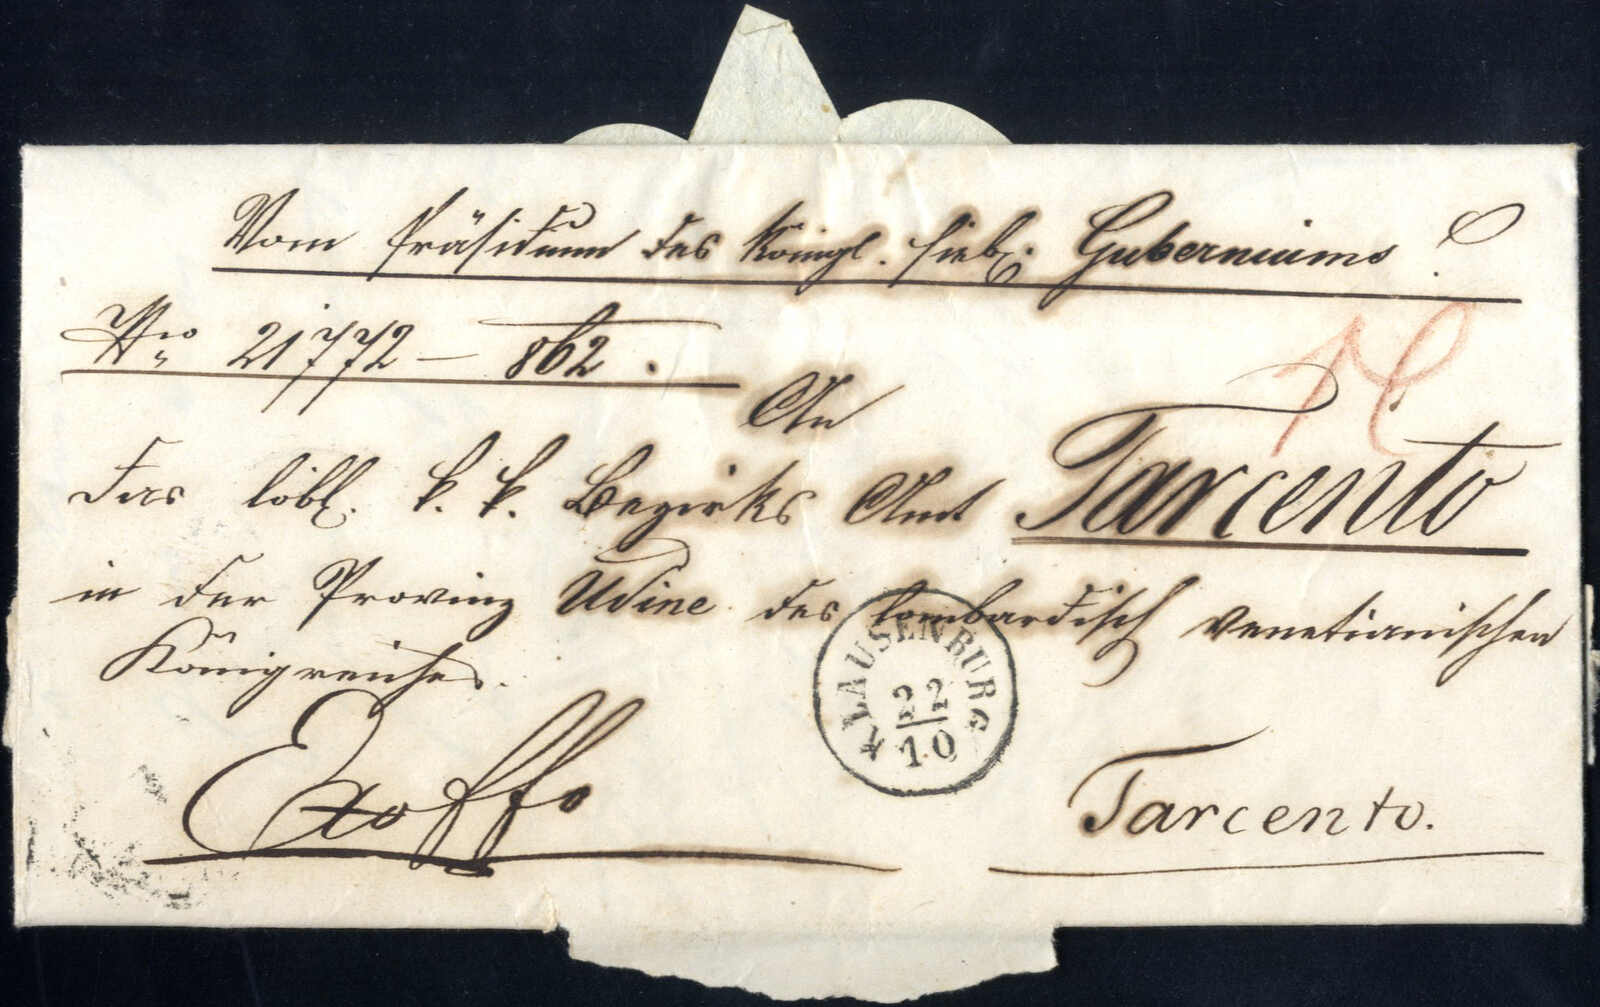 Vom Präsidium des königl. sieb. Guberniums
Nro 21772 - 862.
An
das löbl. k. k. Bezirks Amt Tarcento
in der Provinz Udine des lombardisch venetianischen
Königreiches.
KLAUSENBURG
22
10
Exoffo
Tarcento.